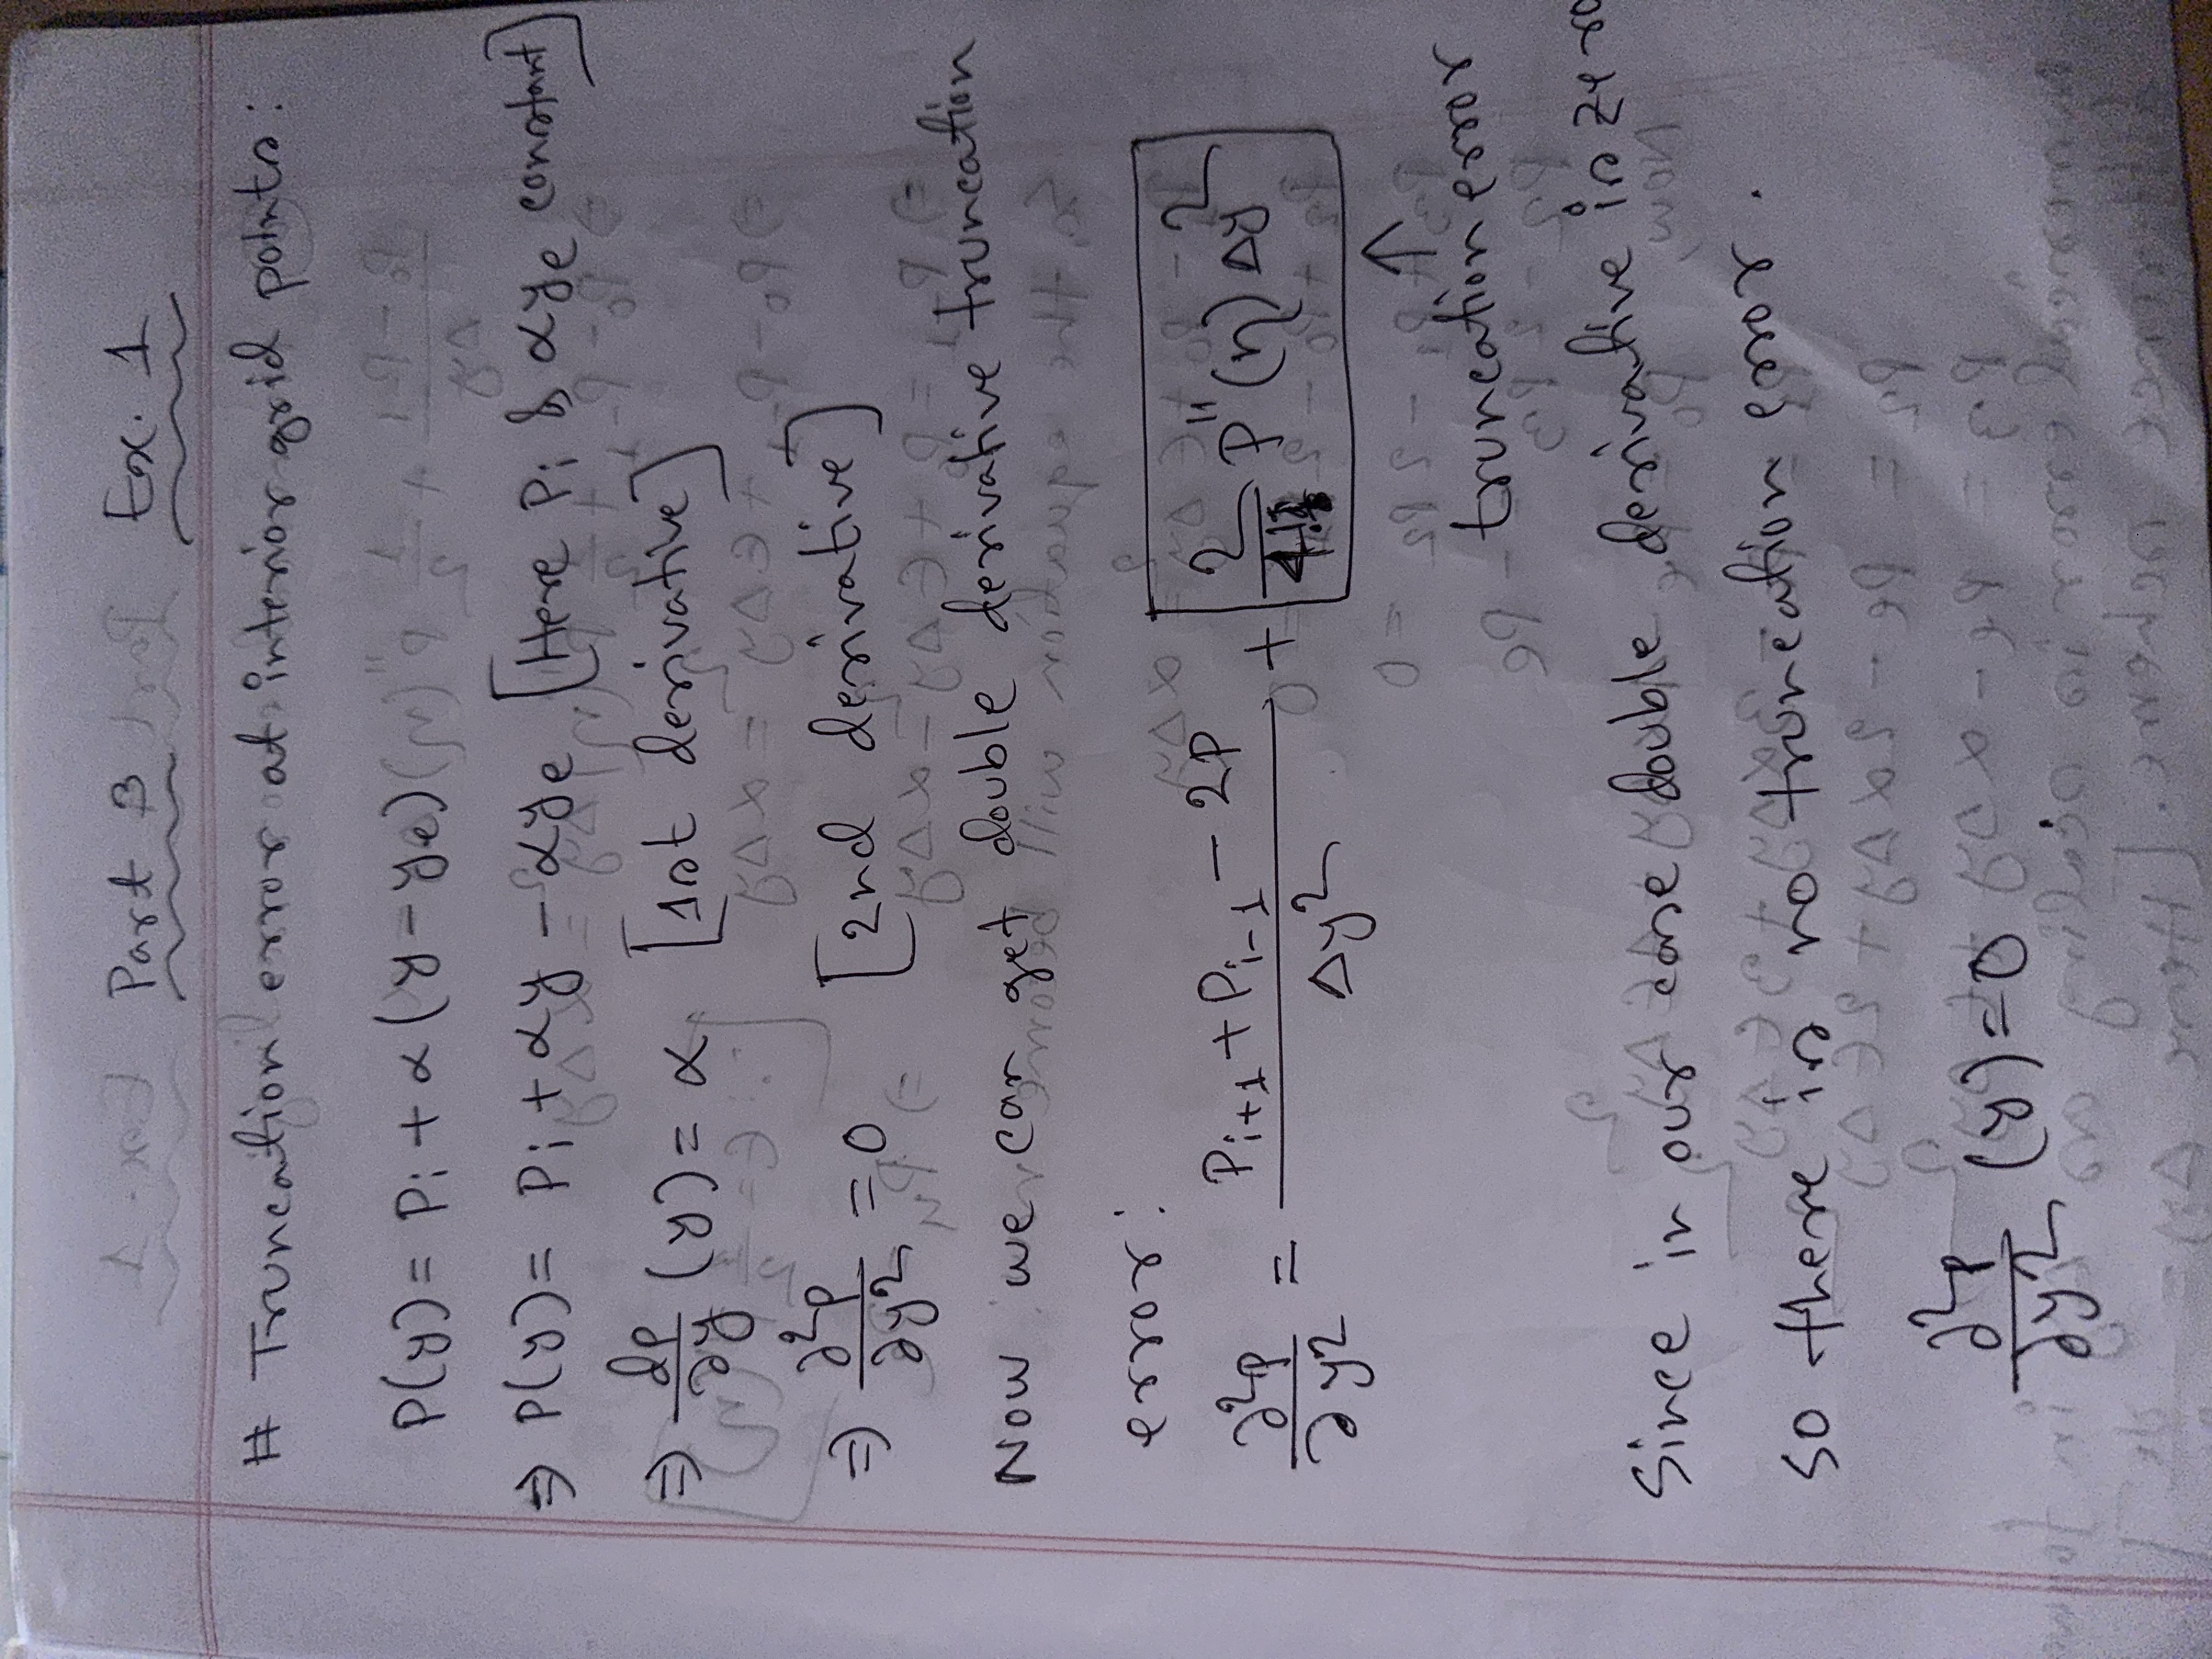 Part 3 Ex. 1
# Truncation error at interior grid points:
P(y) = Pi + α(y-ye)
⇒ P(y) = Pi + αy - αye [Here Pi & αye constant]
⇒ dp/∂y (y) = α [1st derivative]
⇒ ∂²p/∂y² = 0 [2nd derivative]
Now we can get double derivative truncation
error:
∂²p/∂y² = (Pi+1 + Pi-1 - 2P)/Δy² + 2/4! P''(η) Δy²
↑
truncation error
Since in our case double derivative is zero
so there is no truncation error.
∂²p/∂y² (y) = 0.